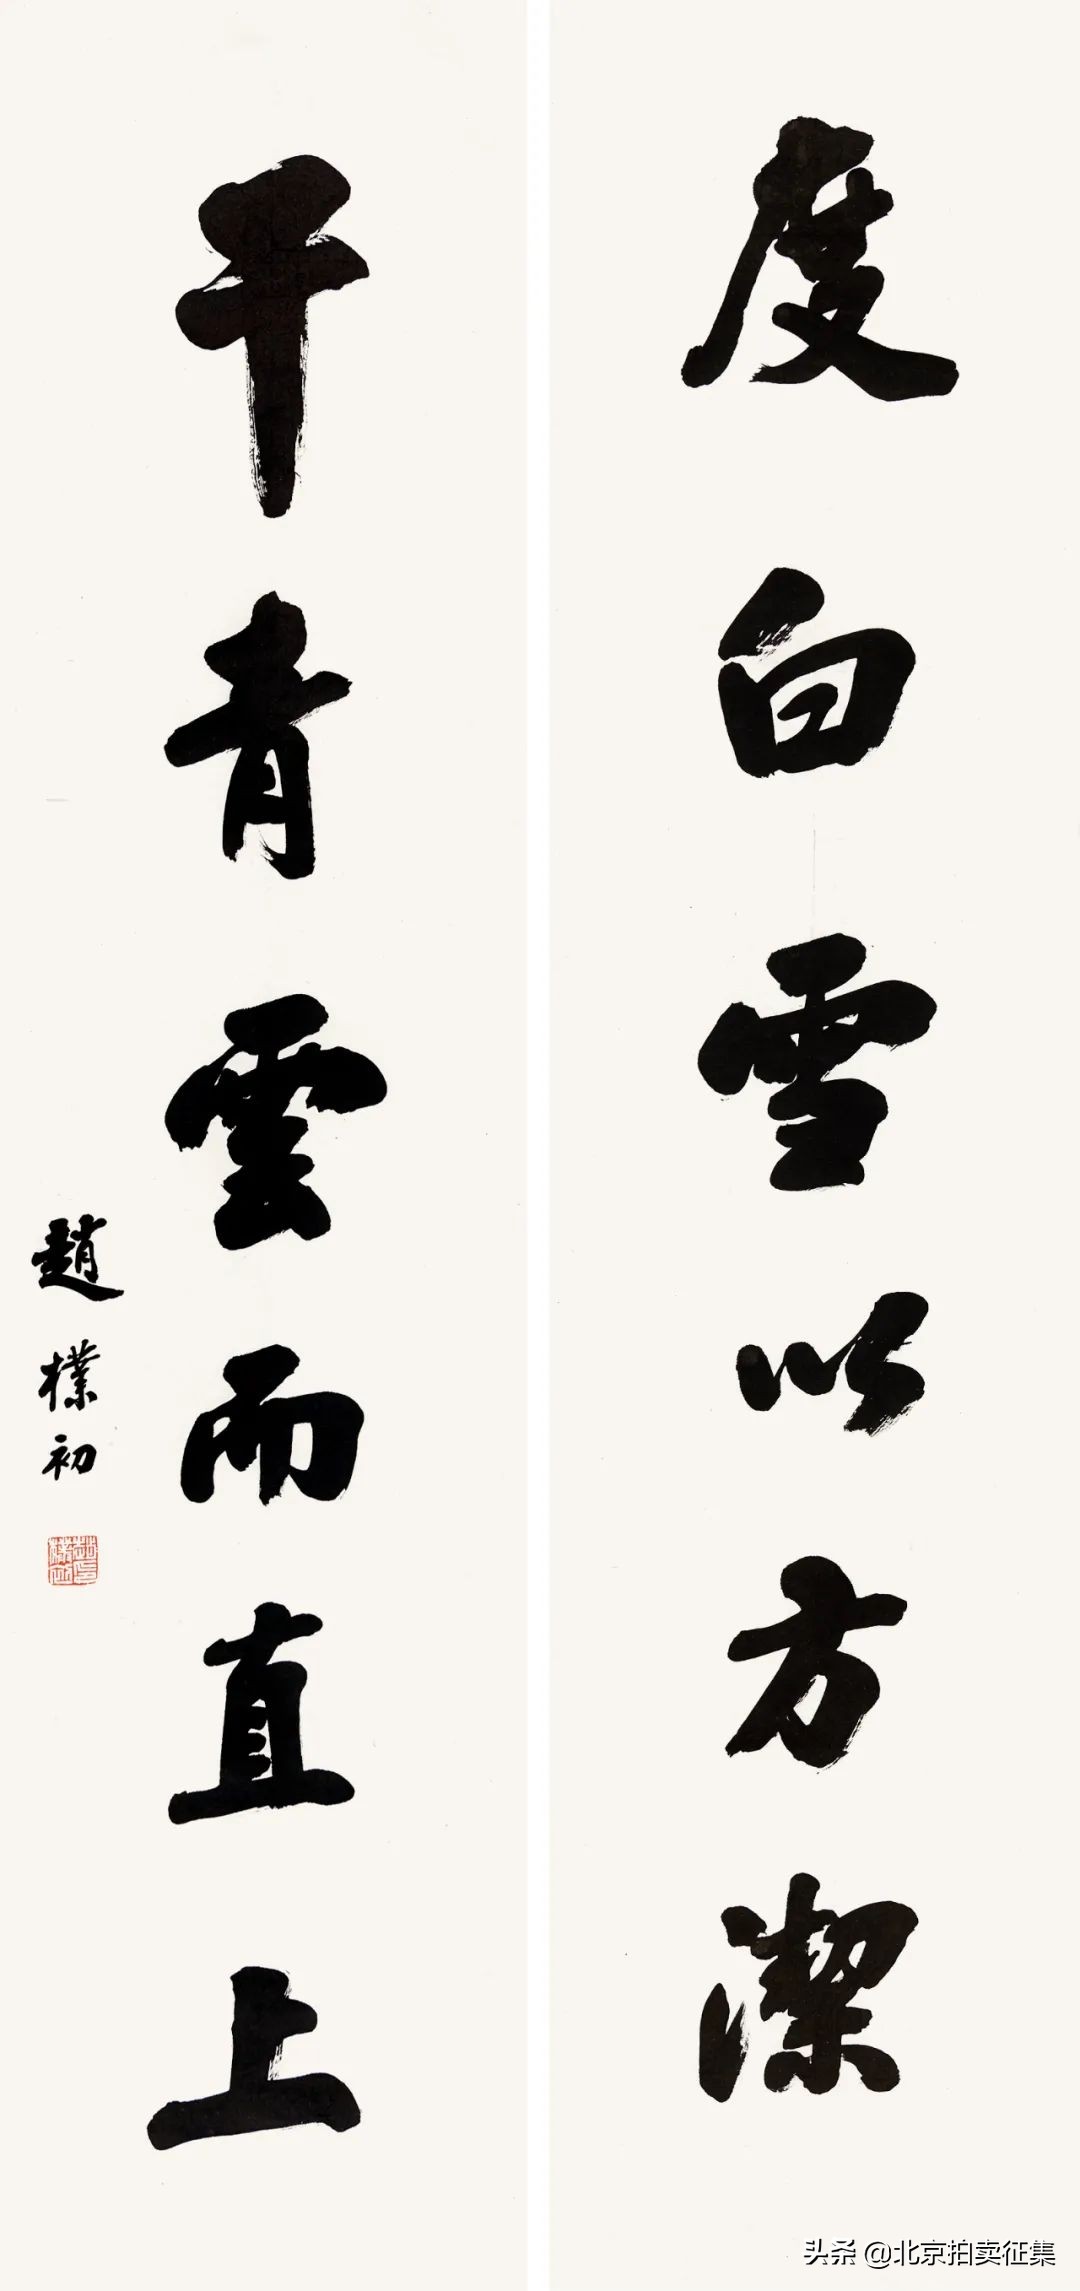 度白雪以方潔
干青雲而直上
趙樸初
头条 @北京拍卖征集